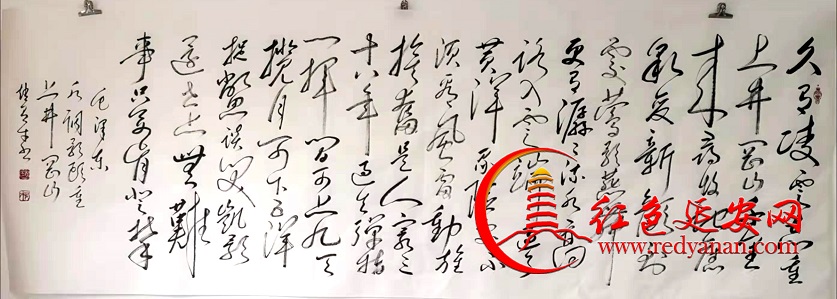 久有凌云志重
上井冈山千里
来寻故地旧
貌变新颜到
处莺歌燕舞
更有潺潺流水高
路入云端过了
黄洋界险处不
须看风雷动旌
旗奋是人寰三
十八年过去弹指
一挥间可上九天
揽月可下五洋
捉鳖谈笑凯歌
还世上无难
事只要肯登攀
毛泽东
水调歌头重
上井冈山
红色延安网
www.redyanan.com